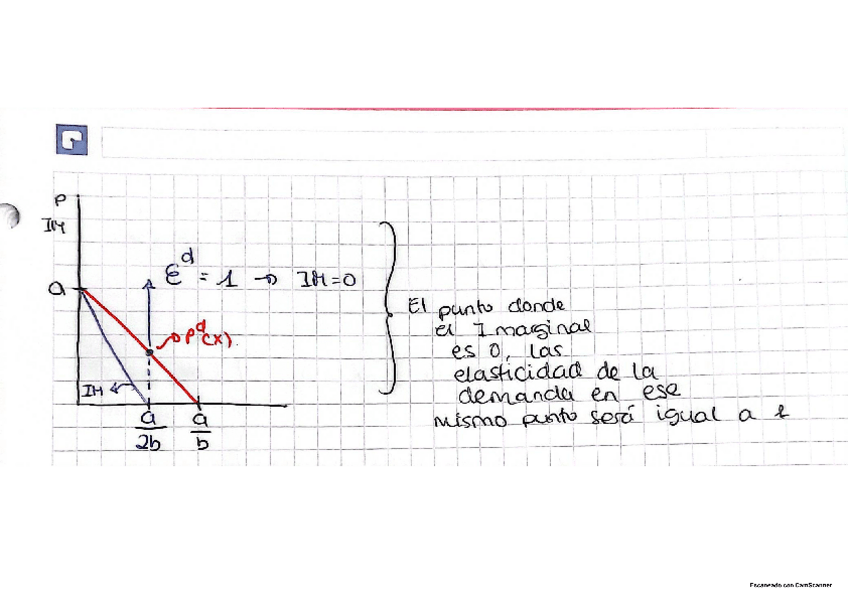 P
IM
a
εᵈ = 1 → IM=0
pᵈ(x).
IM
a/2b
a/b
El punto donde
el I marginal
es 0, las
elasticidad de la
demanda en ese
mismo punto será igual a 1
Escaneado con CamScanner